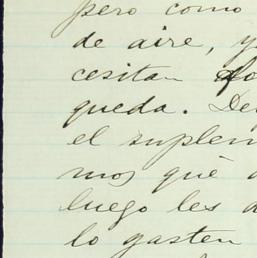 pero como
de aire, y
cesitan
queda. De
el suplem
mos qué
luego les d
lo gasten